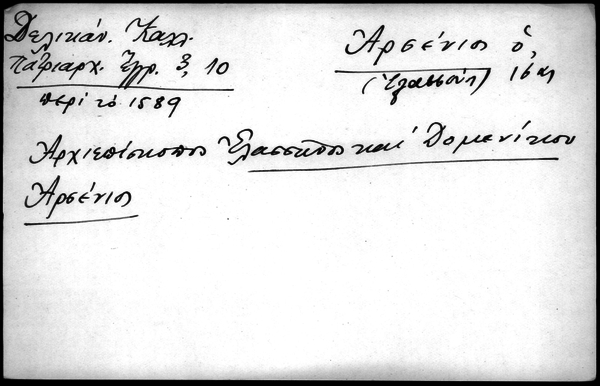 Δελικάν. Καλλ.
Πατριαρχ. Ἔγγρ. 3, 10
περὶ τὸ 1589
Ἀρσένιος ὁ,
(Ἐλασσών) 16 αι
Ἀρχιεπίσκοπος Ἐλασσῶνος καὶ Δομενίκου
Ἀρσένιος